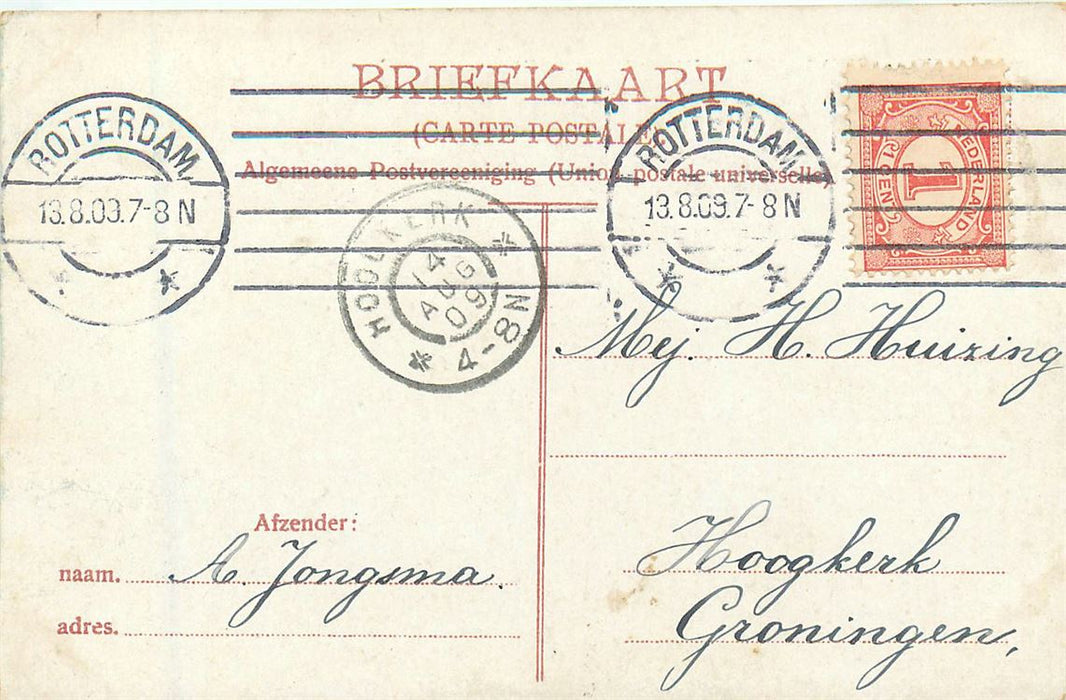 BRIEFKAART
(CARTE POSTALE)
Algemeene Postvereeniging (Union postale universelle)
ROTTERDAM
13.8.09.7-8 N
ROTTERDAM
13.8.09.7-8 N
NEDERLAND
1
1 CENT
HOOGKERK
14
AUG
09
4-8N
Mej. H. Huizing
Hoogkerk
Groningen,
Afzender:
naam. A. Jongsma.
adres.